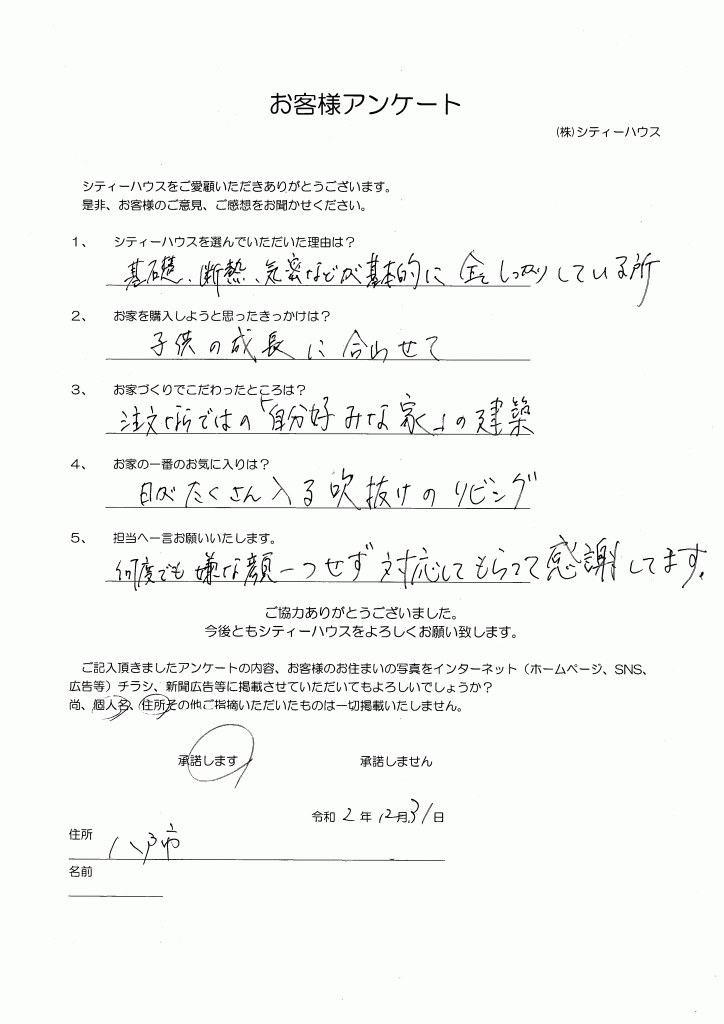 お客様アンケート
(株)シティーハウス
シティーハウスをご愛顧いただきありがとうございます。
是非、お客様のご意見、ご感想をお聞かせください。
1、 シティーハウスを選んでいただいた理由は？
基礎、断熱、気密などが基本的に全てしっかりしている所
2、 お家を購入しようと思ったきっかけは？
子供の成長に合わせて
3、 お家づくりでこだわったところは？
注文ならではの「自分好みな家」の建築
4、 お家の一番のお気に入りは？
日がたくさん入る吹抜けのリビング
5、 担当へ一言お願いいたします。
何度でも嫌な顔一つせず対応してもらって感謝してます。
ご協力ありがとうございました。
今後ともシティーハウスをよろしくお願い致します。
ご記入頂きましたアンケートの内容、お客様のお住まいの写真をインターネット（ホームページ、SNS、
広告等）チラシ、新聞広告等に掲載させていただいてもよろしいでしょうか？
尚、個人名、住所その他ご指摘いただいたものは一切掲載いたしません。
承諾します 承諾しません
令和 2 年 12月 31日
住所 八戸市
名前